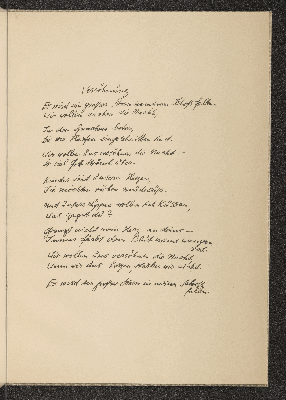 Versöhnung
Es wird ein großer Stern in meinen Schoß fallen.
Wir wollen wachen die Nacht,
In den Sprachen beten,
Die wie Harfen eingeschnitten sind.
Wir wollen uns versöhnen die Nacht –
So viel Gott strömt über.
Kinder sind unsere Herzen,
Die möchten ruhen müdesüß.
Und unsere Lippen wollen sich küssen,
Was zagst du?
Grenzt nicht mein Herz an deins –
Immer färbt dein Blut meine Wangen
rot.
Wir wollen uns versöhnen die Nacht,
Wenn wir uns herzen, sterben wir nicht.
Es wird ein großer Stern in meinen Schoß
fallen.